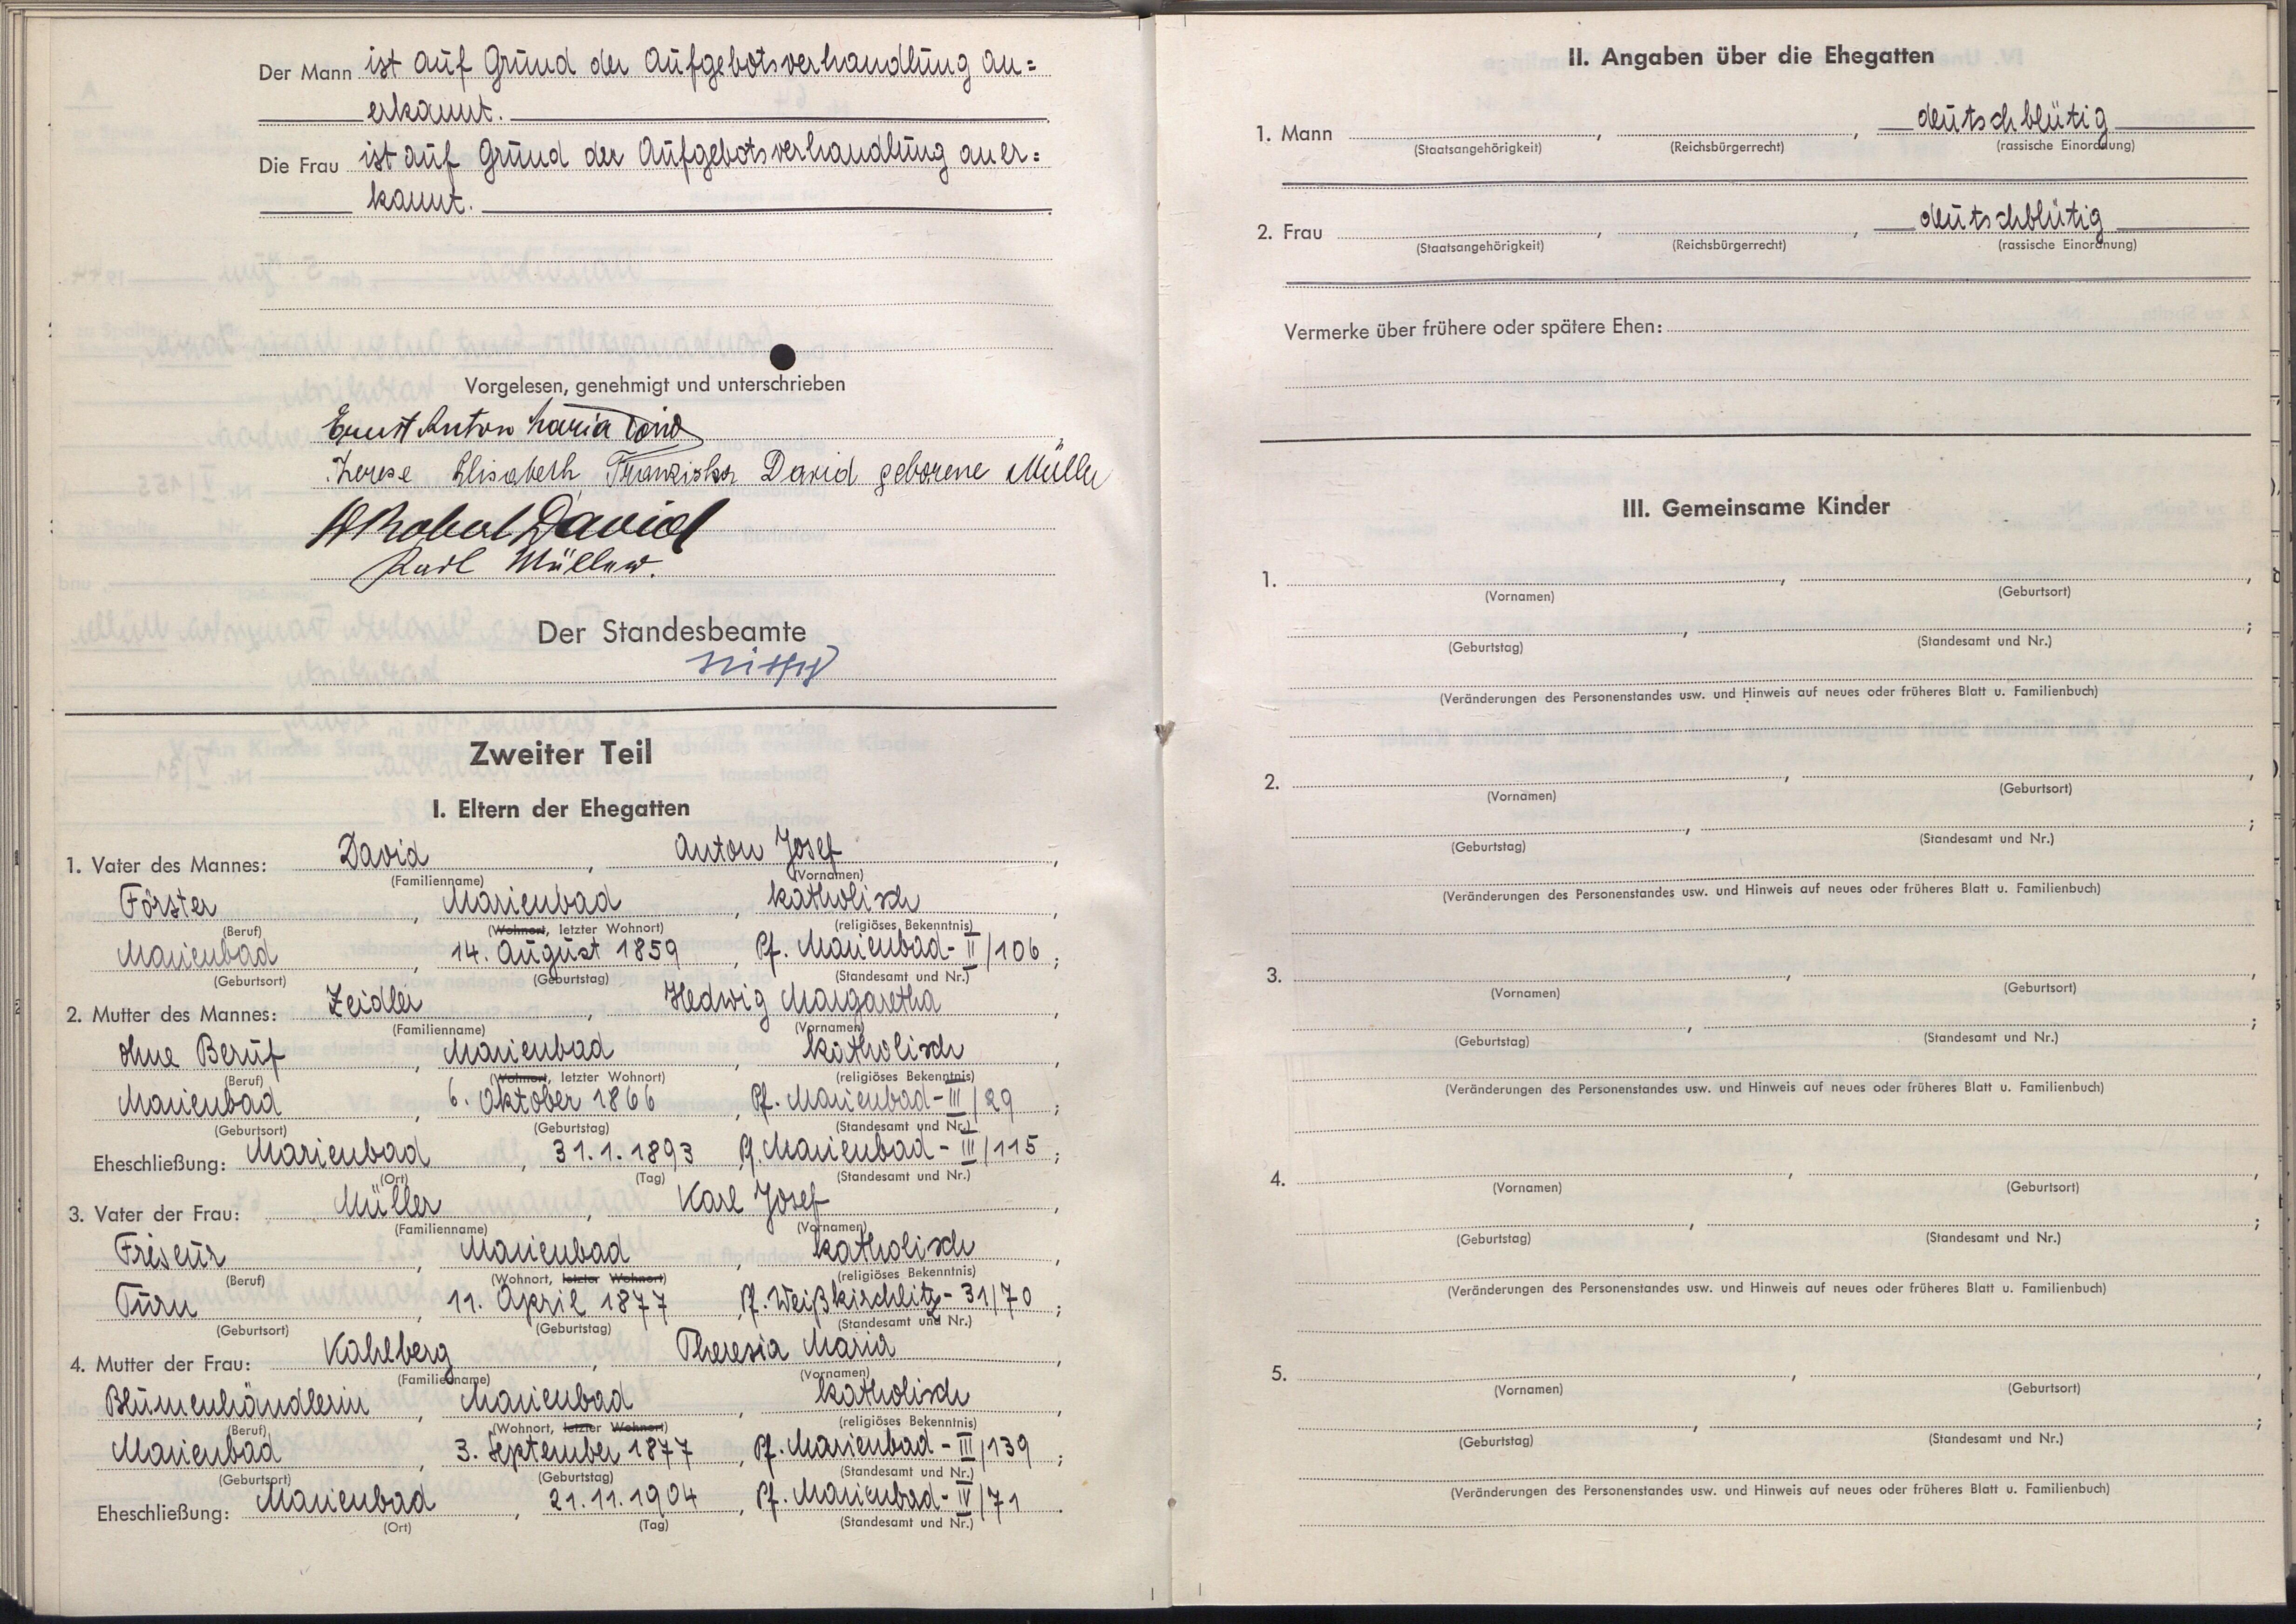 Der Mann ist auf Grund der Aufgebotsverhandlung an=
erkannt.
Die Frau ist auf Grund der Aufgebotsverhandlung aner=
kannt.
Vorgelesen, genehmigt und unterschrieben
Ernst Anton Maria David
Therese Elisabeth Franziska David geborene Müller
David
Karl Müller.
Der Standesbeamte
Zweiter Teil
I. Eltern der Ehegatten
1. Vater des Mannes: David, Anton Josef,
(Familienname) (Vornamen)
Förster, Marienbad, katholisch,
(Beruf) (Wohnort, letzter Wohnort) (religiöses Bekenntnis)
Marienbad, 14. August 1859, Pf. Marienbad - II/106;
(Geburtsort) (Geburtstag) (Standesamt und Nr.)
2. Mutter des Mannes: Zeidler, Hedwig Margaretha,
(Familienname) (Vornamen)
ohne Beruf, Marienbad, katholisch,
(Beruf) (Wohnort, letzter Wohnort) (religiöses Bekenntnis)
Marienbad, 6. Oktober 1866, Pf. Marienbad - III/29;
(Geburtsort) (Geburtstag) (Standesamt und Nr.)
Eheschließung: Marienbad, 31.1.1893, Pf. Marienbad - III/115;
(Ort) (Tag) (Standesamt und Nr.)
3. Vater der Frau: Müller, Karl Josef,
(Familienname) (Vornamen)
Friseur, Marienbad, katholisch,
(Beruf) (Wohnort, letzter Wohnort) (religiöses Bekenntnis)
Turn, 11. April 1877, Pf. Weißkirchlitz - 31/70;
(Geburtsort) (Geburtstag) (Standesamt und Nr.)
4. Mutter der Frau: Kahlberg, Theresia Maria,
(Familienname) (Vornamen)
Blumenhändlerin, Marienbad, katholisch,
(Beruf) (Wohnort, letzter Wohnort) (religiöses Bekenntnis)
Marienbad, 3. September 1877, Pf. Marienbad - III/139;
(Geburtsort) (Geburtstag) (Standesamt und Nr.)
Eheschließung: Marienbad, 21.11.1904, Pf. Marienbad - IV/71.
(Ort) (Tag) (Standesamt und Nr.)
II. Angaben über die Ehegatten
1. Mann , , deutschblütig
(Staatsangehörigkeit) (Reichsbürgerrecht) (rassische Einordnung)
2. Frau , , deutschblütig
(Staatsangehörigkeit) (Reichsbürgerrecht) (rassische Einordnung)
Vermerke über frühere oder spätere Ehen:
III. Gemeinsame Kinder
1. , ,
(Vornamen) (Geburtsort)
, ;
(Geburtstag) (Standesamt und Nr.)
(Veränderungen des Personenstandes usw. und Hinweis auf neues oder früheres Blatt u. Familienbuch)
2. , ,
(Vornamen) (Geburtsort)
, ;
(Geburtstag) (Standesamt und Nr.)
(Veränderungen des Personenstandes usw. und Hinweis auf neues oder früheres Blatt u. Familienbuch)
3. , ,
(Vornamen) (Geburtsort)
, ;
(Geburtstag) (Standesamt und Nr.)
(Veränderungen des Personenstandes usw. und Hinweis auf neues oder früheres Blatt u. Familienbuch)
4. , ,
(Vornamen) (Geburtsort)
, ;
(Geburtstag) (Standesamt und Nr.)
(Veränderungen des Personenstandes usw. und Hinweis auf neues oder früheres Blatt u. Familienbuch)
5. , ,
(Vornamen) (Geburtsort)
, ;
(Geburtstag) (Standesamt und Nr.)
(Veränderungen des Personenstandes usw. und Hinweis auf neues oder früheres Blatt u. Familienbuch)